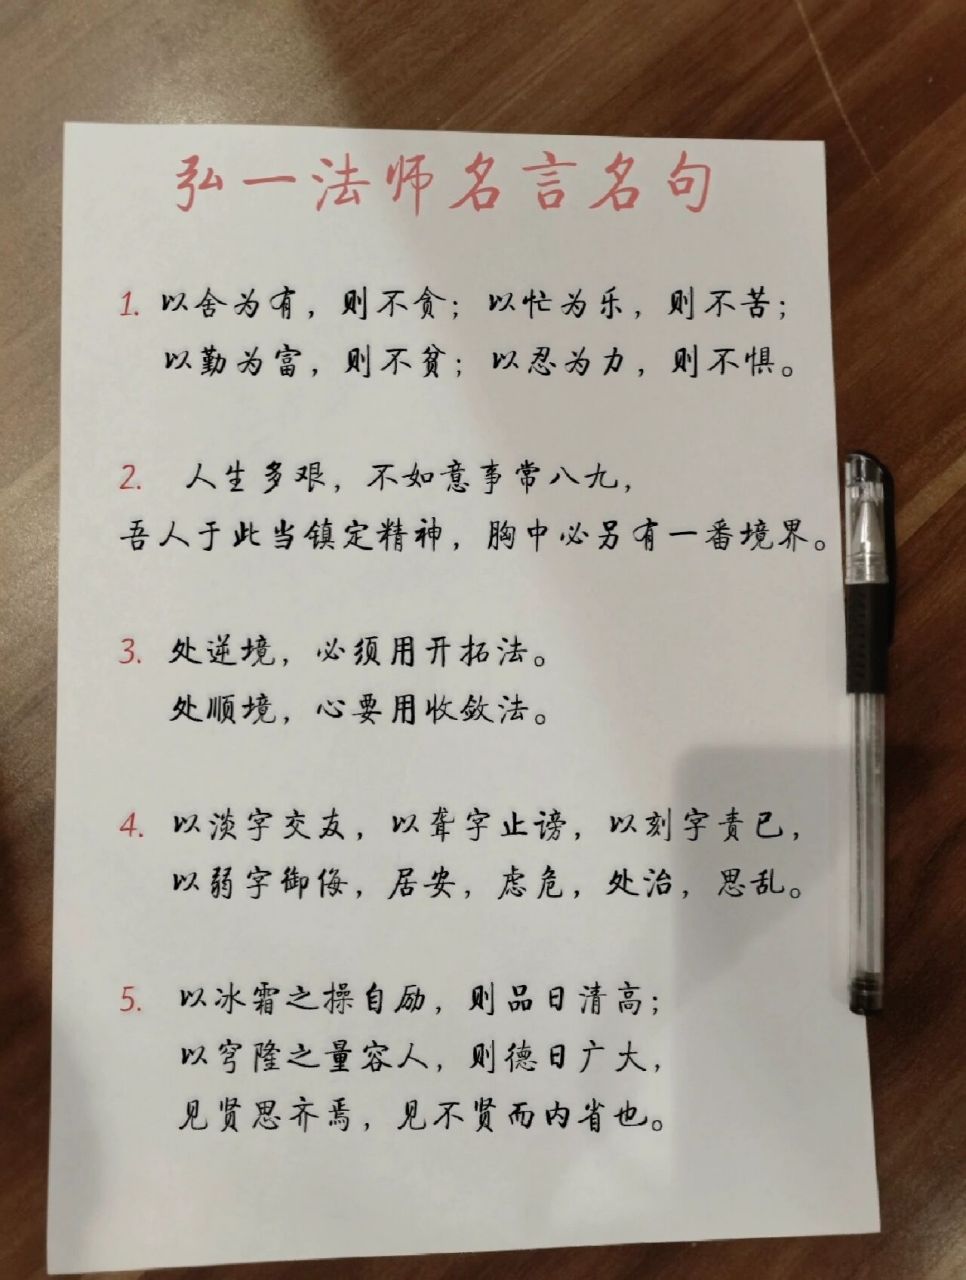 弘一法师名言名句
1. 以舍为有，则不贪；以忙为乐，则不苦；
以勤为富，则不贫；以忍为力，则不惧。
2. 人生多艰，不如意事常八九，
吾人于此当镇定精神，胸中必另有一番境界。
3. 处逆境，必须用开拓法。
处顺境，心要用收敛法。
4. 以淡字交友，以聋字止谤，以刻字责已，
以弱字御侮，居安，虑危，处治，思乱。
5. 以冰霜之操自励，则品日清高；
以穹隆之量容人，则德日广大，
见贤思齐焉，见不贤而内省也。